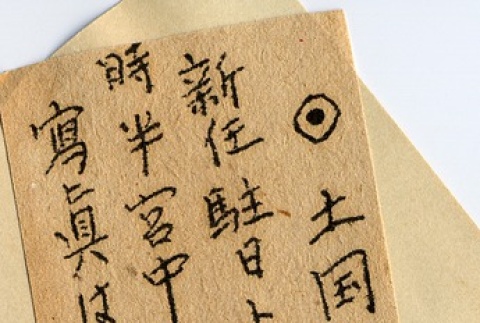 ◎土国
新任駐日
時半宮中
寫眞は